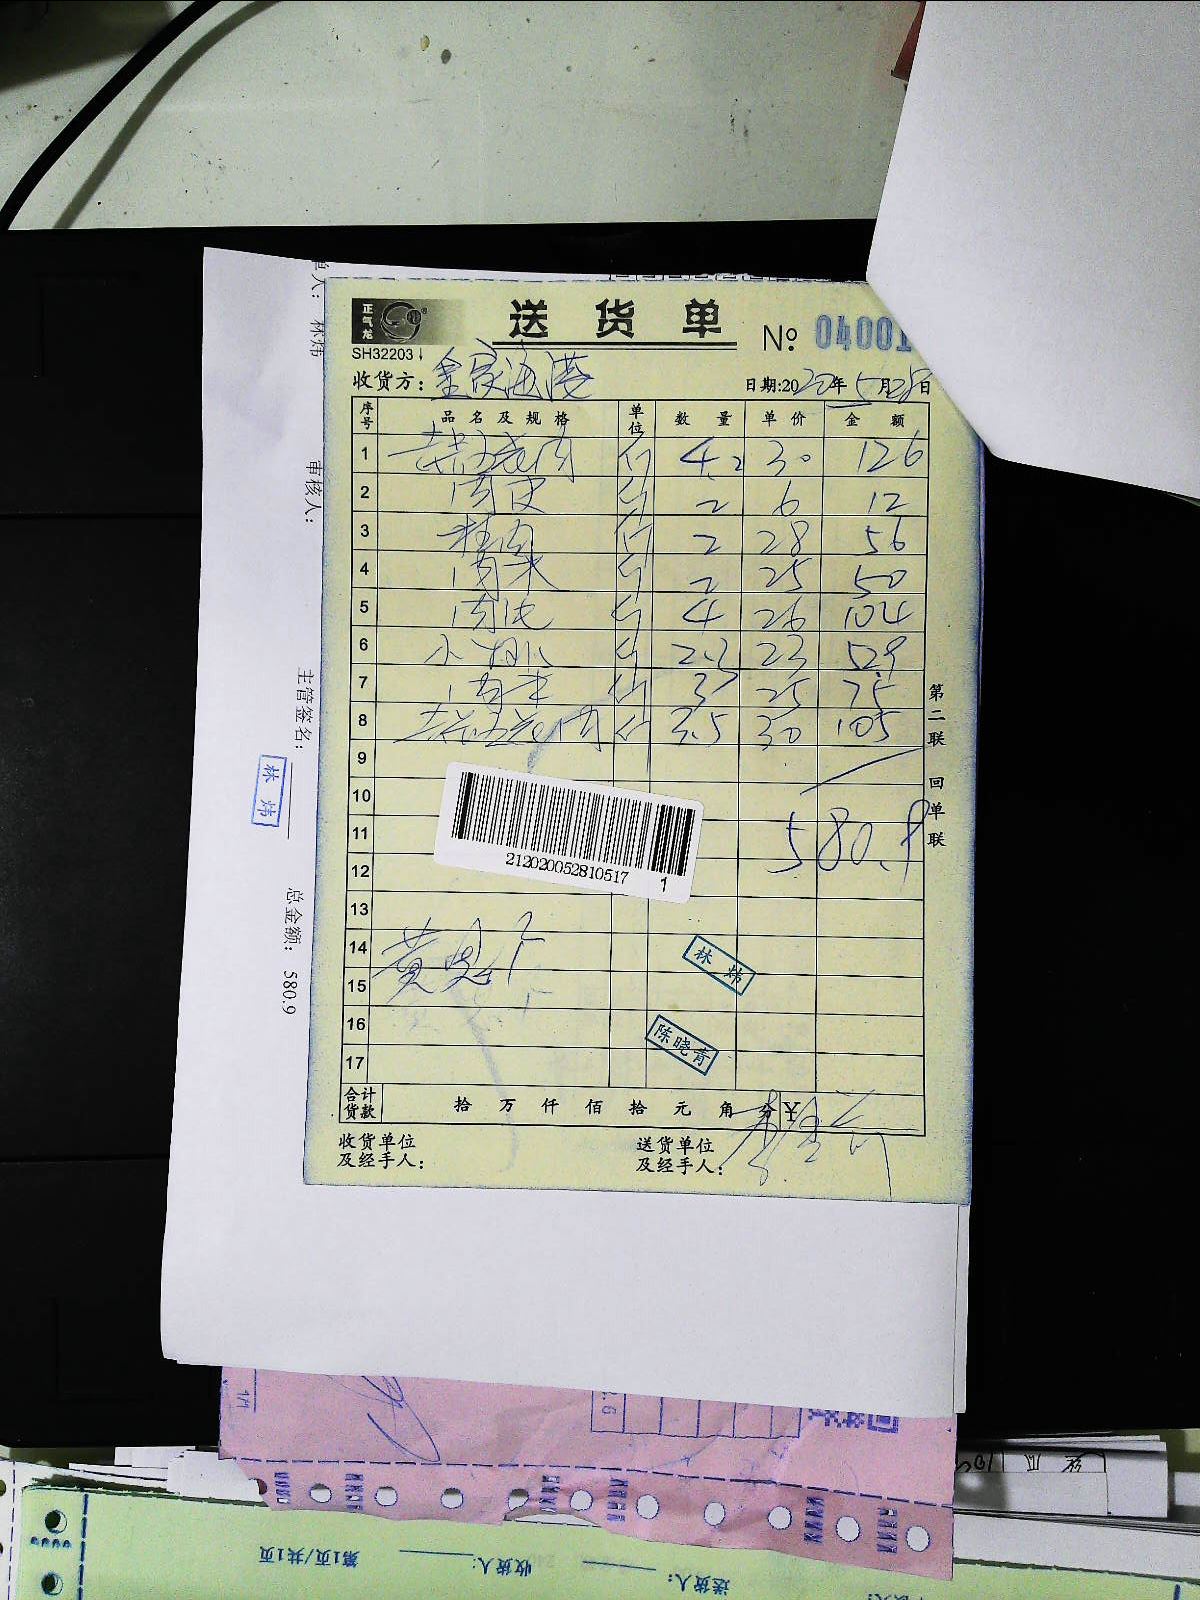 正气龙
送货单
№ 04001
SH32203
收货方：金家海港
日期:2020年5月28日
序号 品名及规格 单位 数量 单价 金额
1 去皮五花肉 斤 4.2 30 126
2 肉皮 斤 2 6 12
3 精肉 斤 2 28 56
4 肉末 斤 2 25 50
5 斤 4 26 104
6 小排 斤 2.3 23 52.9
7 肉末 斤 3 25 75
8 去皮五花肉 斤 3.5 30 105
9
10
11 580.9
12
13
14
15
16
17
212020052810517
1
林炜
陈晓青
合计货款 拾 万 仟 佰 拾 元 角 分
收货单位及经手人：
送货单位及经手人：
第二联 回单联
单人： 林炜
审核人：
主管签名：
林炜
总金额： 580.9
1/1
第1页/共1页
收货人：
送货人：